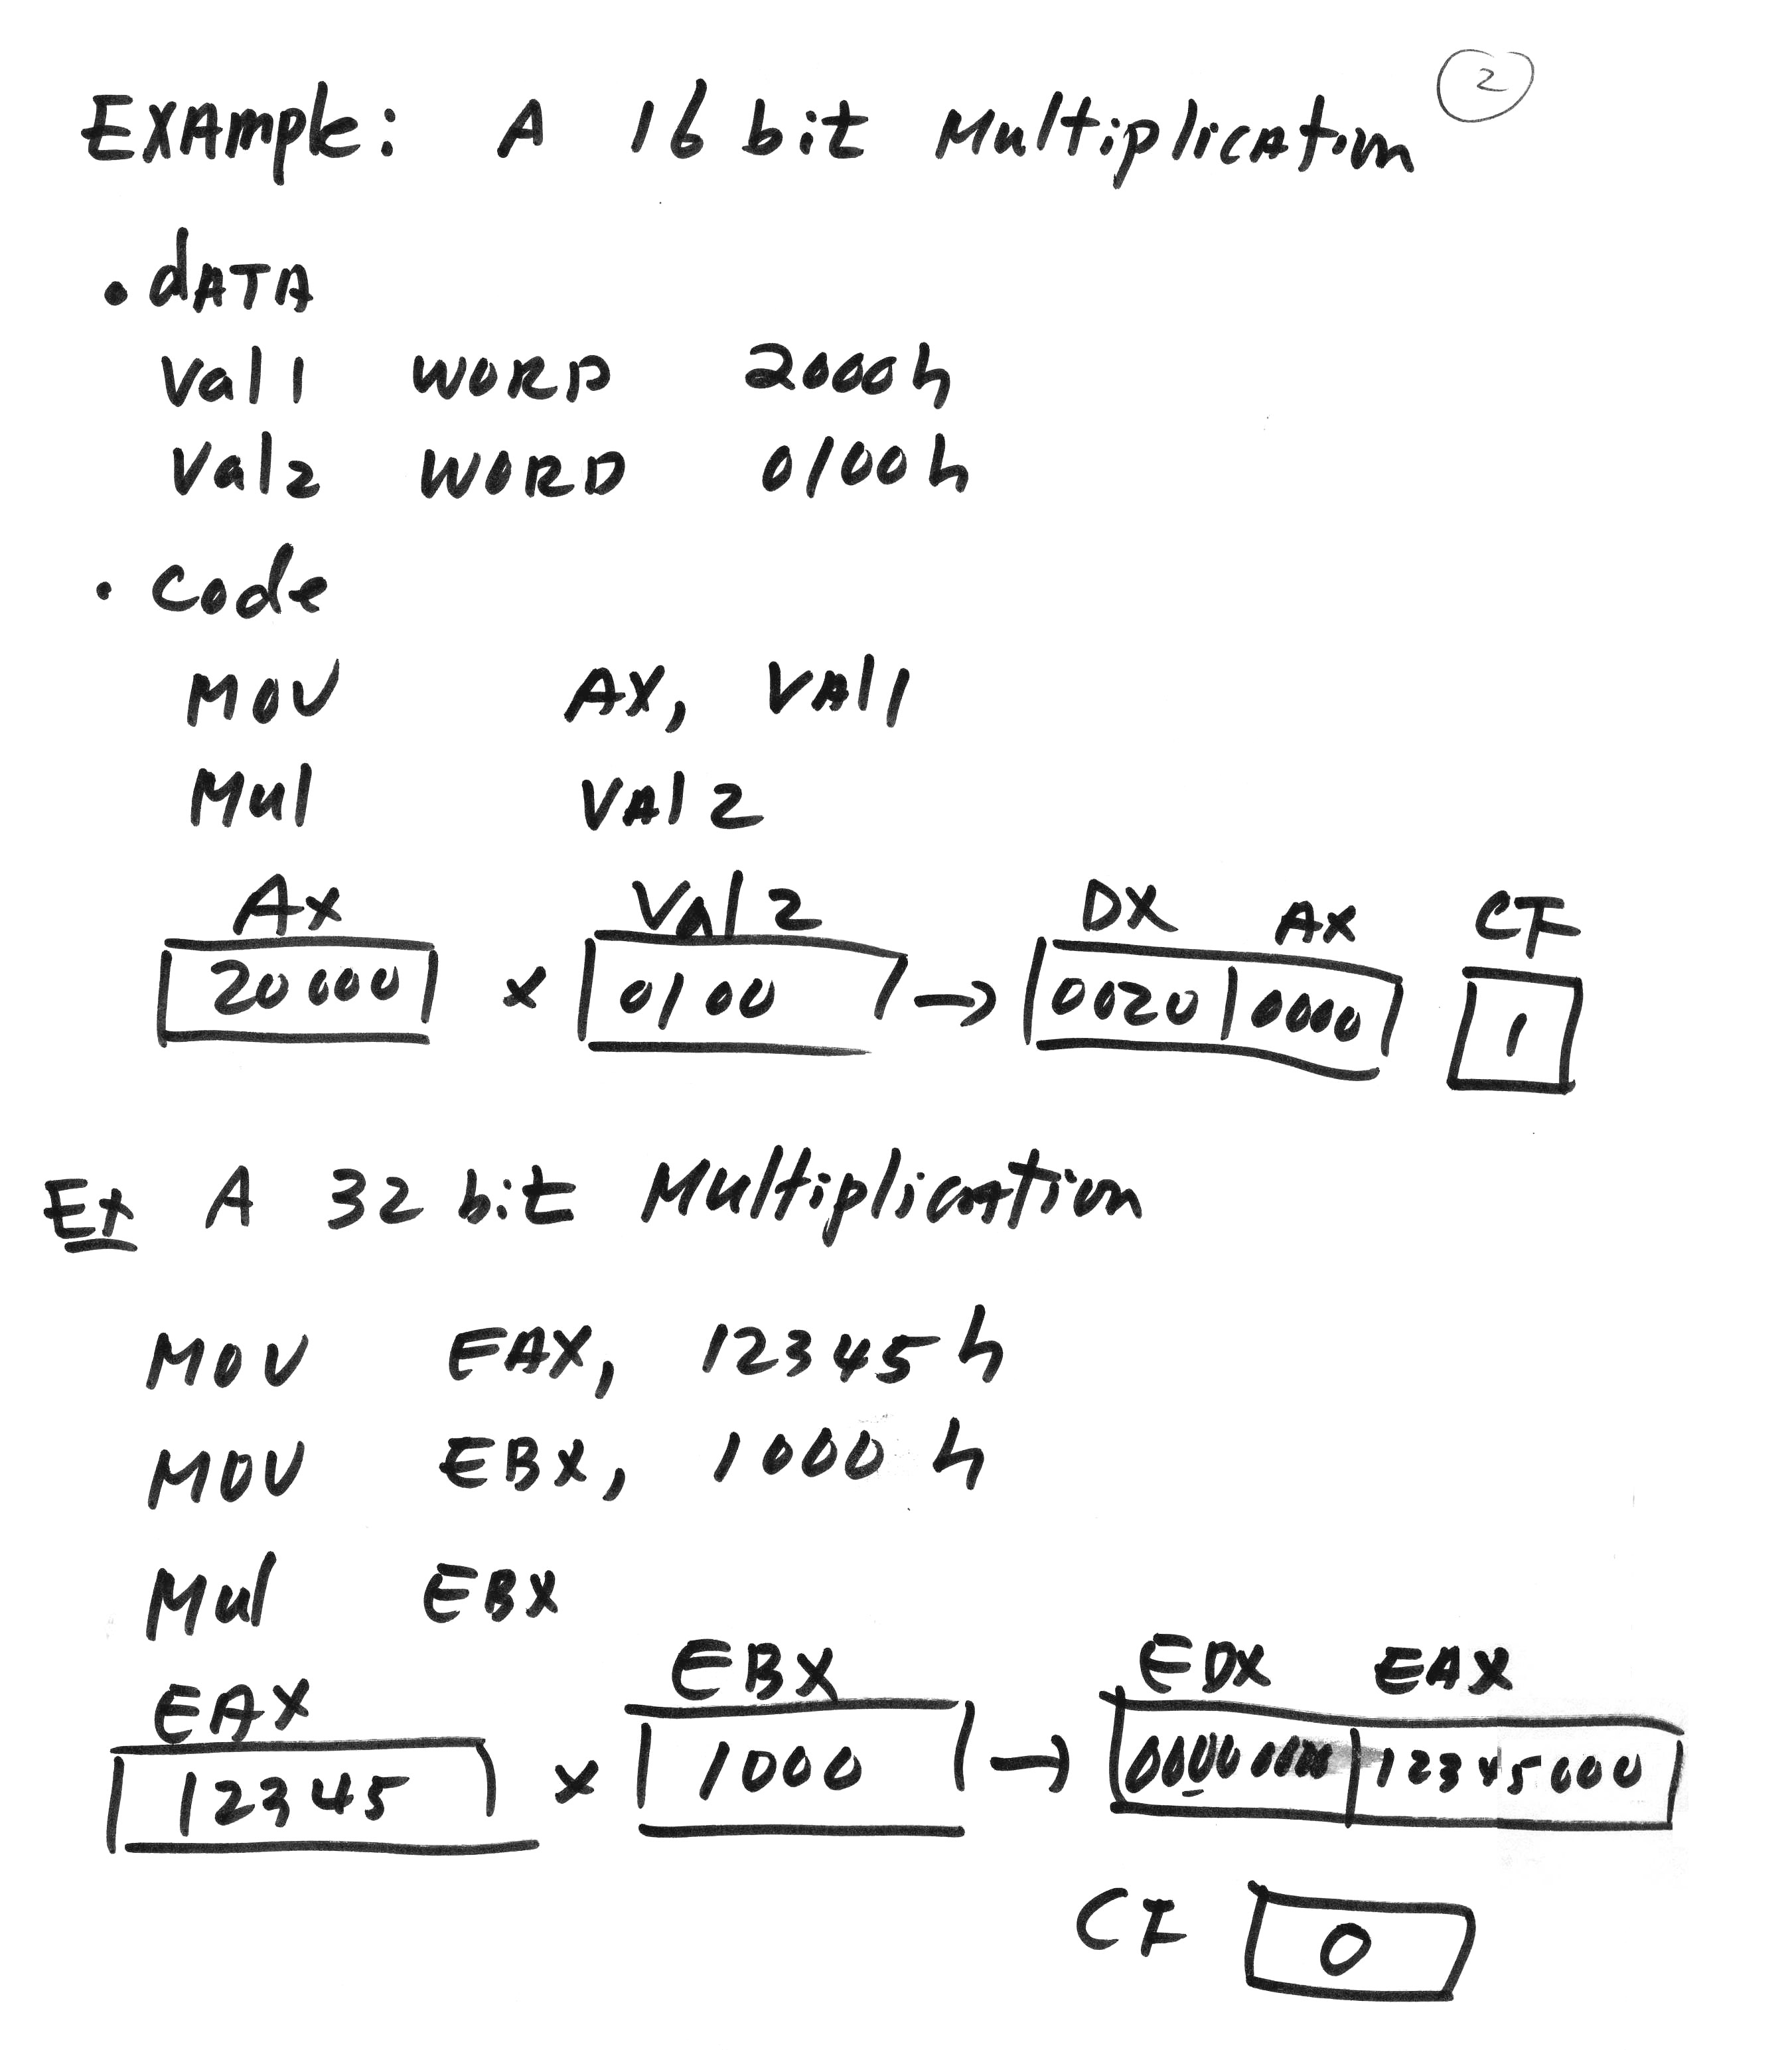 2
EXAmple: A 16 bit Multiplication
.dATA
Val1 WORD 2000h
Val2 WORD 0100h
.Code
MOV AX, VAl1
Mul VAl2
AX Val2 DX AX CF
20000 x 0100 → 0020 0000 1
Ex A 32 bit Multiplication
MOV EAX, 12345h
MOV EBX, 1000h
Mul EBX
EAX EBX EDX EAX
12345 x 1000 → 00000000 12345000
CF 0